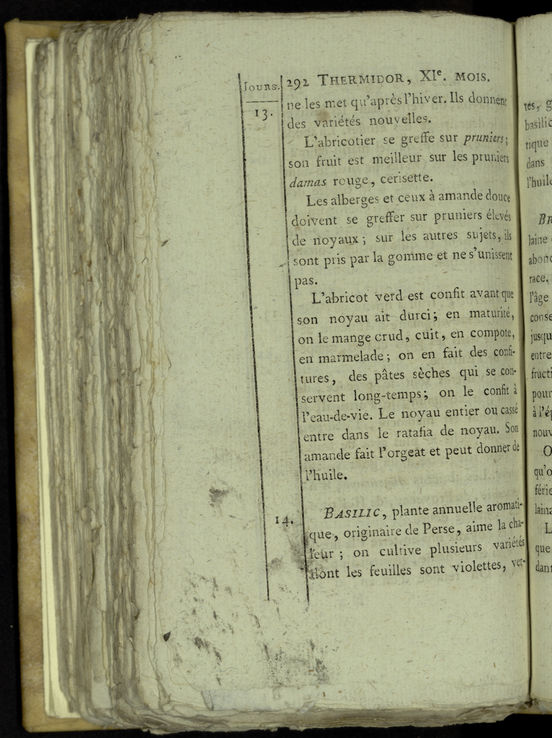 Jours.
292 THERMIDOR, XIe. MOIS.
13.
ne les met qu'après l'hiver. Ils donnent
des variétés nouvelles.
L'abricotier se greffe sur pruniers;
son fruit est meilleur sur les pruniers
damas rouge, cerisette.
Les alberges et ceux à amande douce
doivent se greffer sur pruniers élevés
de noyaux; sur les autres sujets, ils
sont pris par la gomme et ne s'unissent
pas.
L'abricot verd est confit avant que
son noyau ait durci; en maturité,
on le mange crud, cuit, en compote,
en marmelade; on en fait des confi-
tures, des pâtes sèches qui se con-
servent long-temps; on le confit à
l'eau-de-vie. Le noyau entier ou cassé
entre dans le ratafia de noyau. Son
amande fait l'orgeat et peut donner de
l'huile.
14.
BASILIC, plante annuelle aromati-
que, originaire de Perse, aime la cha-
leur; on cultive plusieurs variétés
dont les feuilles sont violettes, ver-
tes,
basilic
tique
dans
l'huile
laine
abond
race,
l'âge
conse
jusqu
entre
fructi
pour
à l'ép
nouv
O
qu'o
férie
laina
L
que
dans